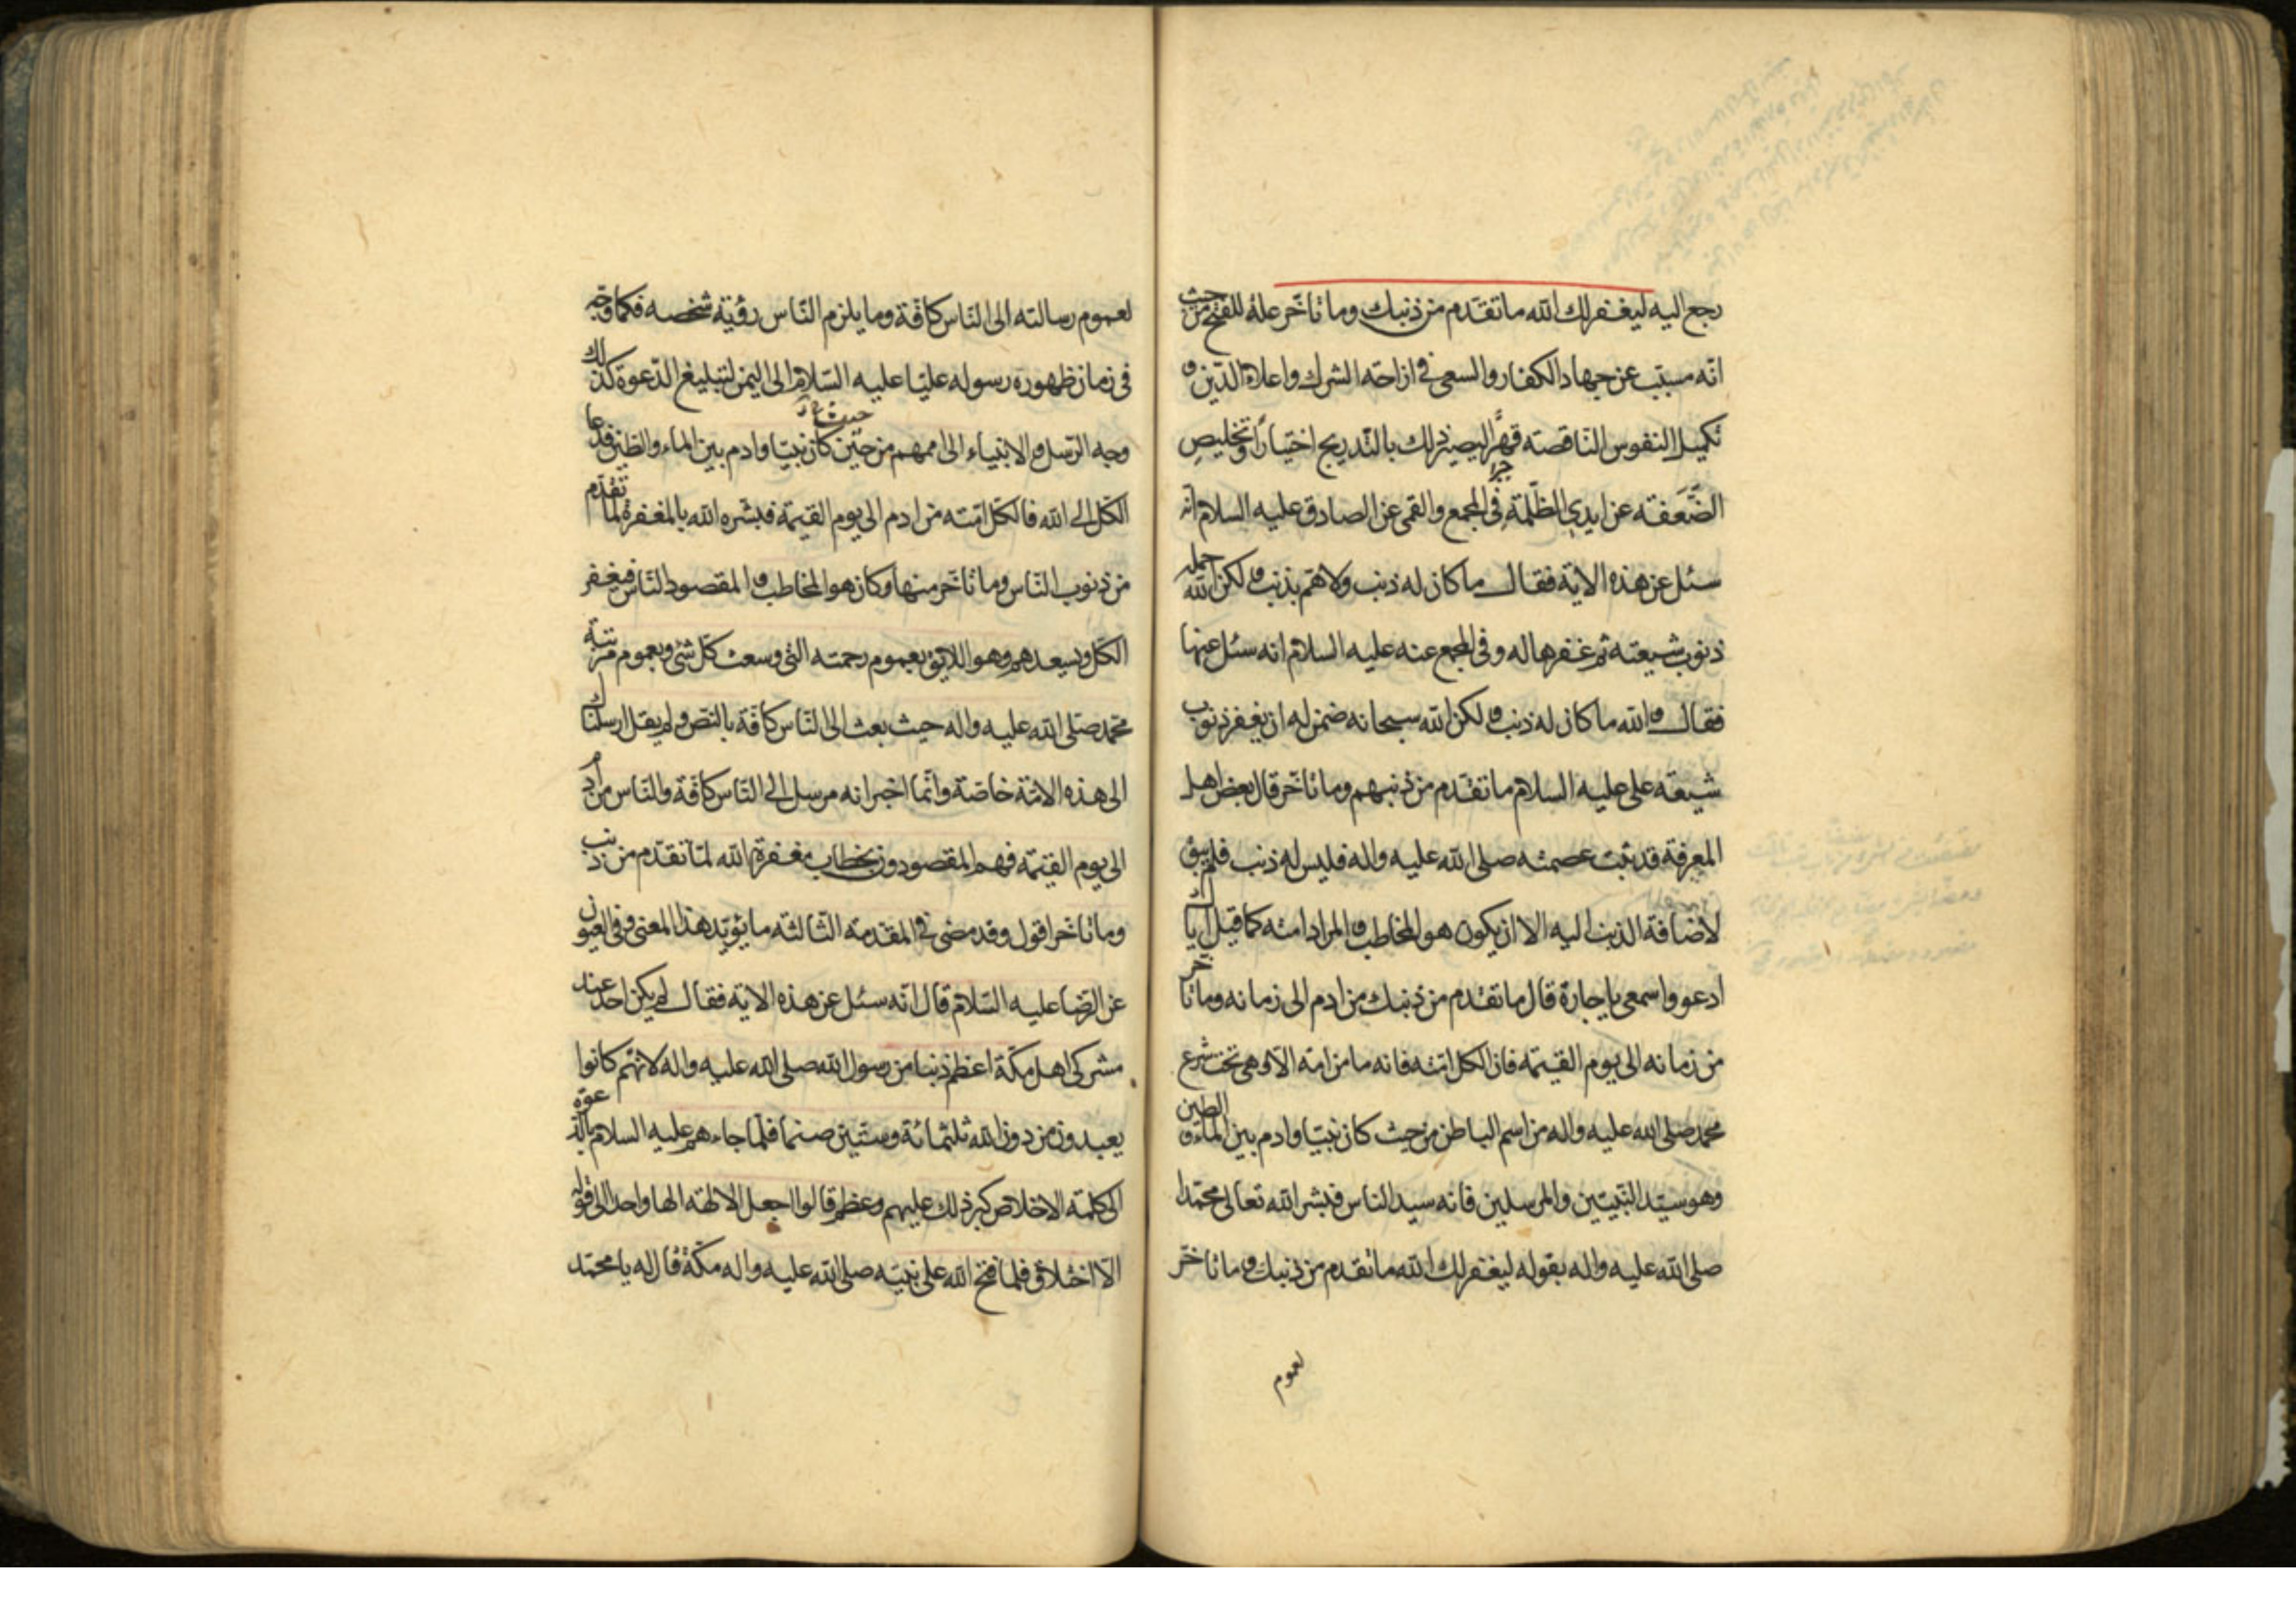 رجع اليه ليغفر لك الله ما تقدم من ذنبك وما تاخر علة للفتح من حيث
انه مسبب عن جهاد الكفار والسعى فى ازاحة الشرك واعلاء الدين و
تكميل النفوس الناقصة قهرا ليصير ذلك بالتدريج اختيارا وتخليص
الضعفة عن ايدى الظلمة فى المجمع والقمى عن الصادق عليه السلام انه
سئل عن هذه الاية فقال ما كان له ذنب ولا هم بذنب ولكن الله حمله
ذنوب شيعته ثم غفرها له وفى المجمع عنه عليه السلام انه سئل عنها
فقال والله ما كان له ذنب ولكن الله سبحانه ضمن له ان يغفر ذنوب
شيعة على عليه السلام ما تقدم من ذنبهم وما تاخر قال بعض اهل
المعرفة قد ثبت عصمته صلى الله عليه واله فليس له ذنب فلم يبق
لاضافة الذنب اليه الا ان يكون هو المخاطب والمراد امته كما قيل اياك
ادعو واسمعى يا جارة قال ما تقدم من ذنبك من ادم الى زمانه وما تاخر
من زمانه الى يوم القيمة فان الكل امته فانه ما من امة الا وهى تحت شرع
محمد صلى الله عليه واله من اسم الباطن من حيث كان نبيا وادم بين الماء والطين
وهو سيد النبيين والمرسلين فانه سيد الناس فبشر الله تعالى محمدا
صلى الله عليه واله بقوله ليغفر لك الله ما تقدم من ذنبك وما تاخر
لعموم
لعموم رسالته الى الناس كافة وما يلزم الناس رؤية شخصه فكما وجه
فى زمان ظهوره رسوله عليا عليه السلام الى اليمن لتبليغ الدعوة كذلك
وجه الرسل والانبياء الى اممهم من حين كان نبيا وادم بين الماء والطين فدعا
الكل الى الله فالكل امته من ادم الى يوم القيمة فبشره الله بالمغفرة لما تقدم
من ذنوب الناس وما تاخر منها وكان هو المخاطب والمقصود الناس فيغفر
الكل ويسعدهم وهو اللايق بعموم رحمته التى وسعت كل شئ وبعموم مرتبة
محمد صلى الله عليه واله حيث بعث الى الناس كافة بالنص ولم يقل ارسلناك
الى هذه الامة خاصة وانما اخبر انه مرسل الى الناس كافة والناس من ادم
الى يوم القيمة فهم المقصودون بخطاب مغفرة الله لما تقدم من ذنب
وما تاخر اقول وقد مضى فى المقدمة الثالثة ما يؤيد هذا المعنى وفى العيون
عن الرضا عليه السلام قال انه سئل عن هذه الاية فقال لم يكن احد عند
مشركى اهل مكة اعظم ذنبا من رسول الله صلى الله عليه واله لانهم كانوا
يعبدون من دون الله ثلثمائة وستين صنما فلما جاءهم عليه السلام بالدعوة
الى كلمة الاخلاص كبر ذلك عليهم وعظم قالوا اجعل الالهة الها واحدا الى قوله
الا اختلاق فلما فتح الله على نبيه صلى الله عليه واله مكة قال له يا محمد